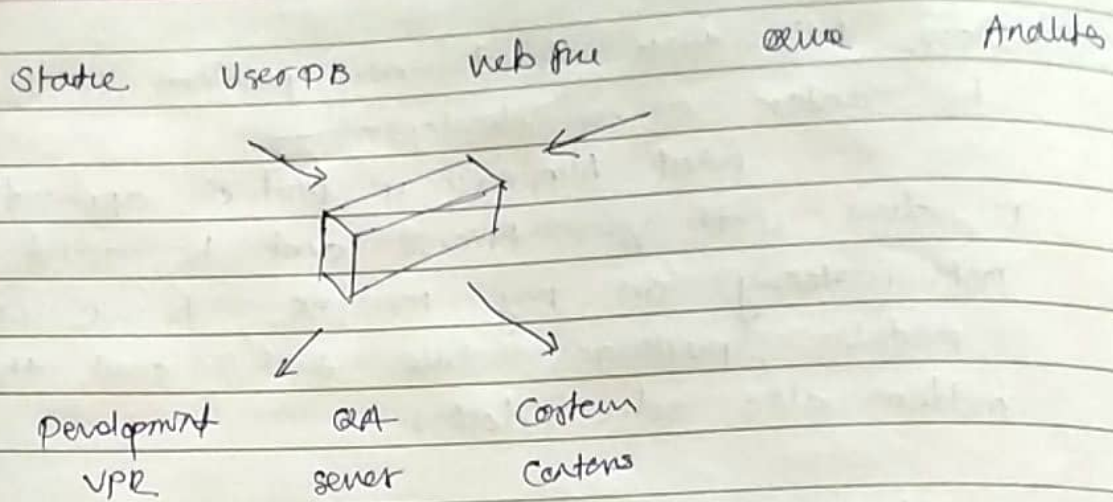 Static User DB Web fne Queue Analytes
Development QA Custem
VPR server Contens